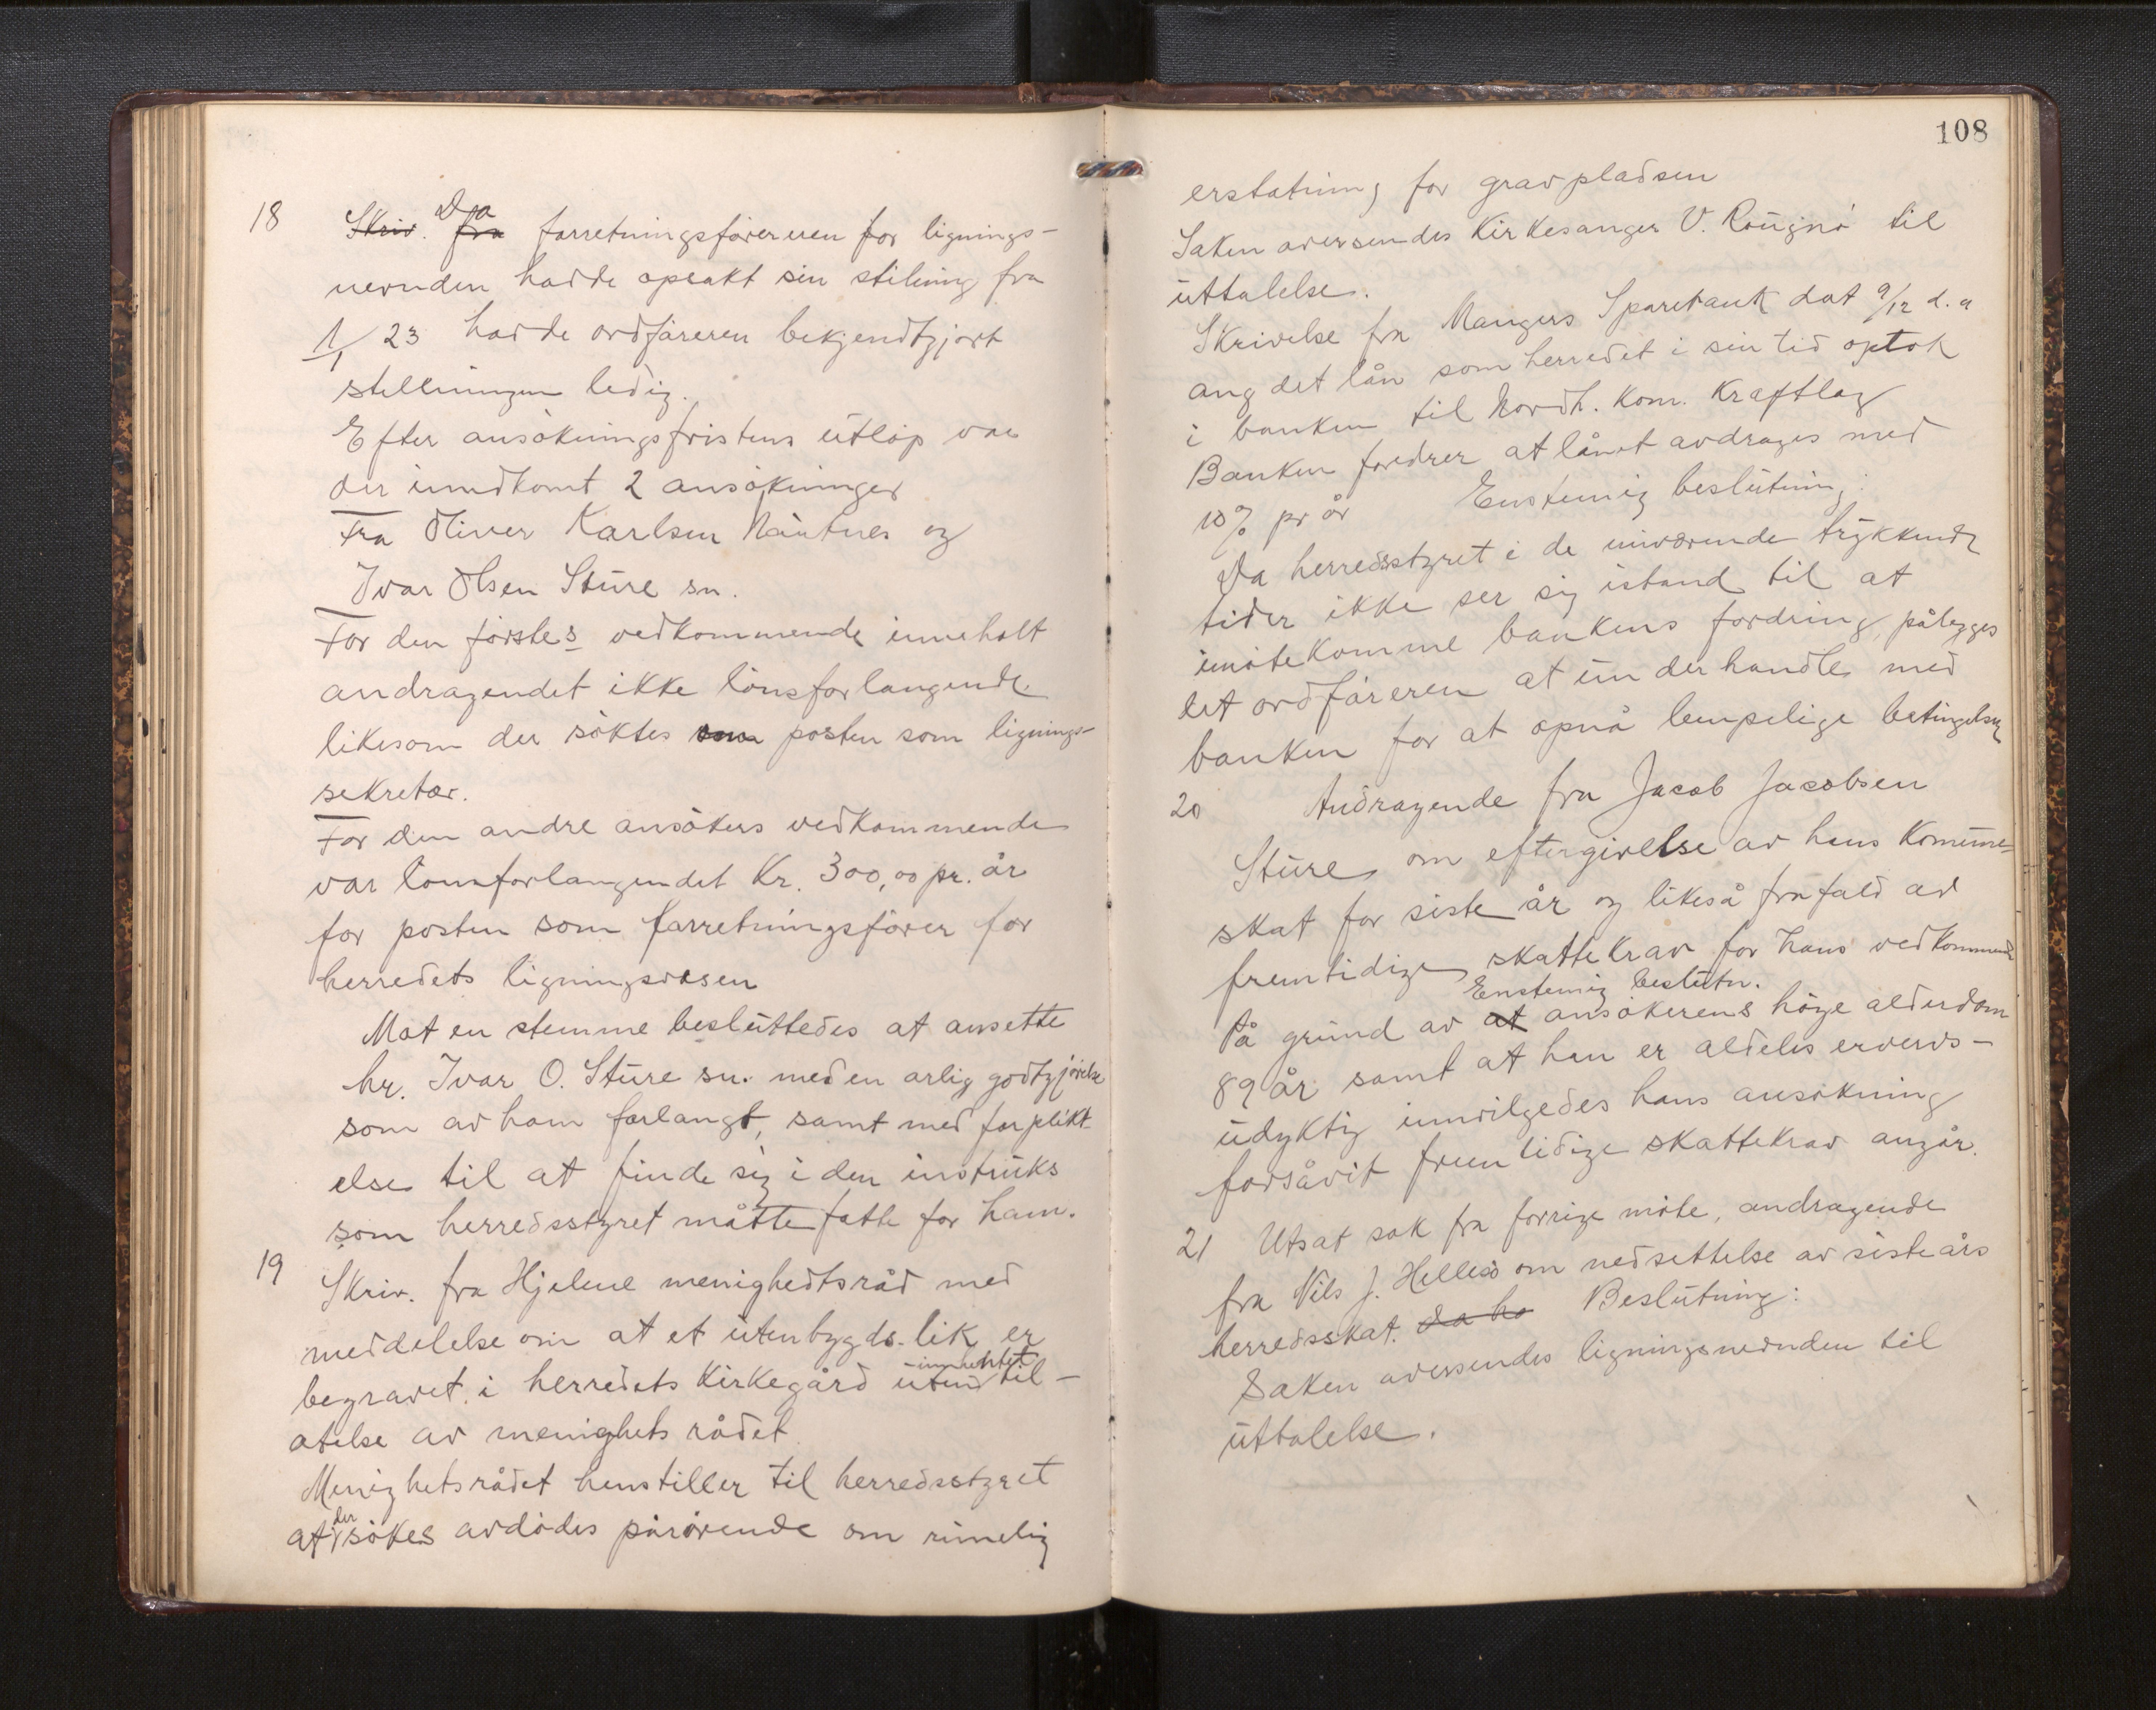 18 Skriv. fra Da forretningsförereren for lignings-
nevnden hadde opsakt sin stilling fra
1/1 23 hadde ordföreren bekjendtgjort
stellningen ledig.
Efter ansökningsfristens utlöp var
der inndkomt 2 ansökninger
Fra Oliver Karlsen Nautnes og
Ivar Olsen Sture sn.
For den förstes vedkommende inneholt
andragendet ikke lönsforlangende
likesom der söktes som posten som lignings-
sekretær.
For den andre ansökers vedkommende
var lönsforlangendet Kr. 300,00 pr. år
for posten som forretningsförer for
herredets ligningsvesen
Mot en stemme besluttedes at ansette
hr. Ivar O. Sture sn. med en årlig godtgjörelse
som av ham forlangt, samt med forplikt-
else til at finde sig i den instruks
som herredsstyret måtte fatte for ham.
19 Skriv. fra Hjelme menighedtsråd med
meddelelse om at et utenbygds lik er
begravet i herredets Kirkegård uten innhentet til-
atelse av menighets rådet
Menighetsrådet henstiller til herredsstyret
at der sökes avdödes pårörende om rimelig
108
erstatning for gravpladsen
Saken oversendes Kirkesanger V. til
uttalelse.
Skrivelse fra Mangers Sparebank dat 9/12 d. a
ang det lån som herredet i sin tid optok
i banken til Nordh. Kom. Kraftlag
Banken fordrer at lånet avdrages med
10% pr år Enstemig beslutning:
Da herredsstyret i de nuværende trykkende
tider ikke ser sig istand til at
imötekomme bankens fordring, pålegges
det ordföreren at underhandle med
banken for at opnå lempelige betingelser
20 Andragende fra Jacob Jacobsen
Sture om eftergivelse av hans Kommune-
skat for siste år og likeså frafald av
fremtidige skattekrav for hans vedkommende
Enstemig beslutn.
På grund av at ansökerens höye alderdom
89 år samt at han er aldeles ervervs-
udyktig innvilgedes hans ansökning
forsåvit fremtidige skattekrav angår.
21 Utsat sak fra forrige möte, andragende
fra Nils J. Hellesö om nedsettelse av siste års
herredsskat. Da ha Beslutning:
Saken oversendes ligningsnevnden til
uttalelse.